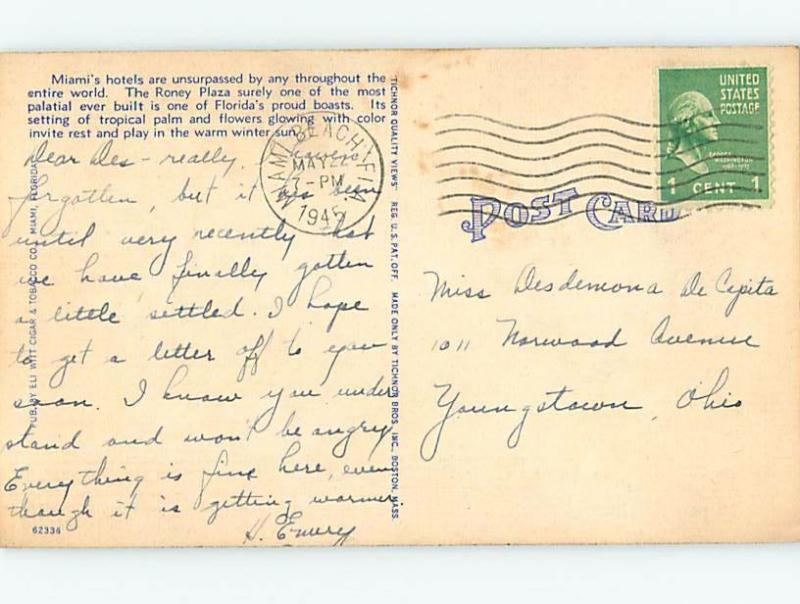 Miami's hotels are unsurpassed by any throughout the
entire world. The Roney Plaza surely one of the most
palatial ever built is one of Florida's proud boasts. Its
setting of tropical palm and flowers glowing with color
invite rest and play in the warm winter sun.
Dear Des - really, I haven't
forgotten, but it has been
until very recently that
we have finally gotten
a little settled. I hope
to get a letter off to you
soon. I know you under
stand and won't be angry
Everything is fine here, even
though it is getting warmer
H. Emery
62336
PUB. BY ELI WITT CIGAR & TOBACCO CO., MIAMI, FLORIDA
"TICHNOR QUALITY VIEWS" REG. U.S. PAT. OFF. MADE ONLY BY TICHNOR BROS. INC., BOSTON, MASS.
MIAMI BEACH, FLA.
MAY 22
7-PM
1945
UNITED
STATES
POSTAGE
GEORGE
WASHINGTON
1 CENT 1
POST CARD
Miss Desdemona De Cepita
1011 Norwood Avenue
Youngstown, Ohio